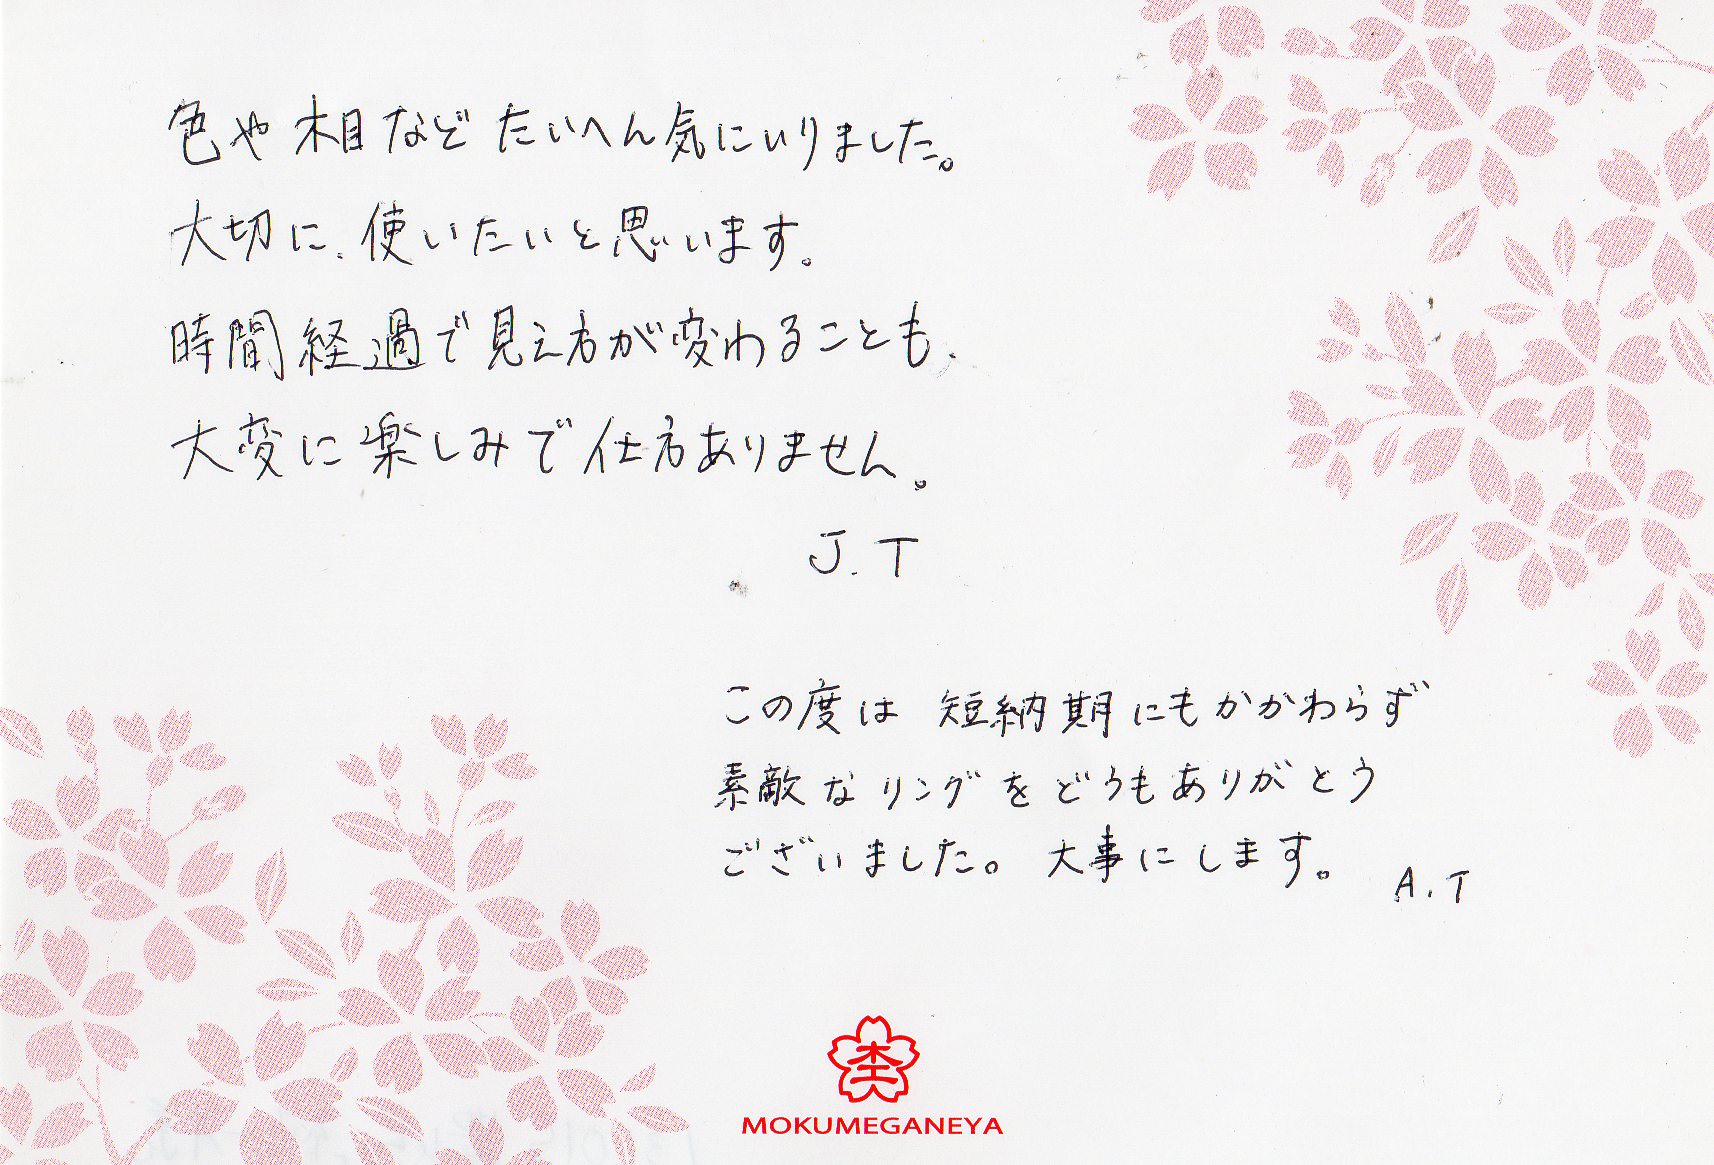 色や木目などたいへん気にいりました。
大切に、使いたいと思います。
時間経過で見え方が変わることも、
大変に楽しみで仕方ありません。
J.T
この度は 短納期にもかかわらず
素敵なリングをどうもありがとう
ございました。大事にします。
A.T
MOKUMEGANEYA